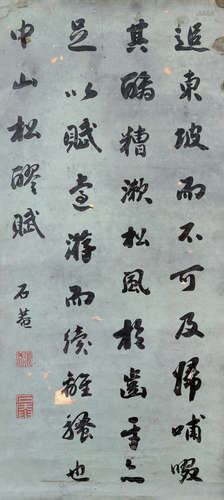 追東坡而不可及歸哺啜
其醨糟漱松風於齒牙亦
足以賦遠游而續離騷也
中山松醪賦
石菴